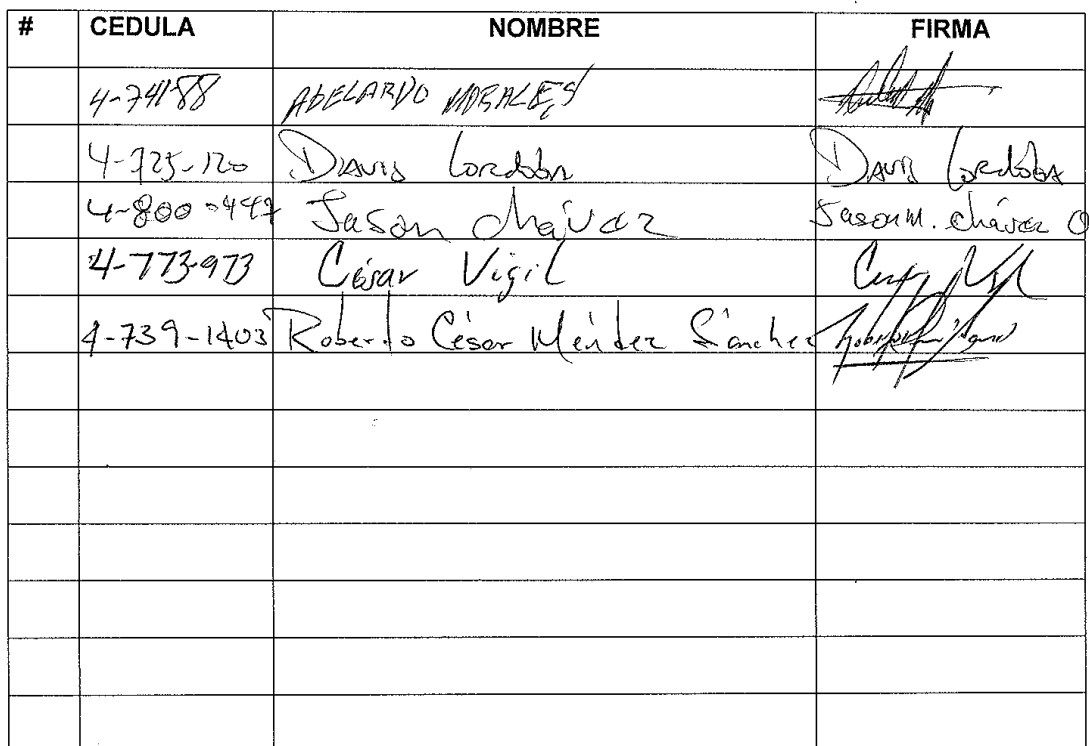 # CEDULA NOMBRE FIRMA
4-74188 ABELARDO MORALES
4-725-120 DAVID Cordoba DAVID Cordoba
4-800-447 Jason chávez Jason M. chávez O
4-773-973 César Vigil
4-739-1403 Roberto César Méndez Sánchez